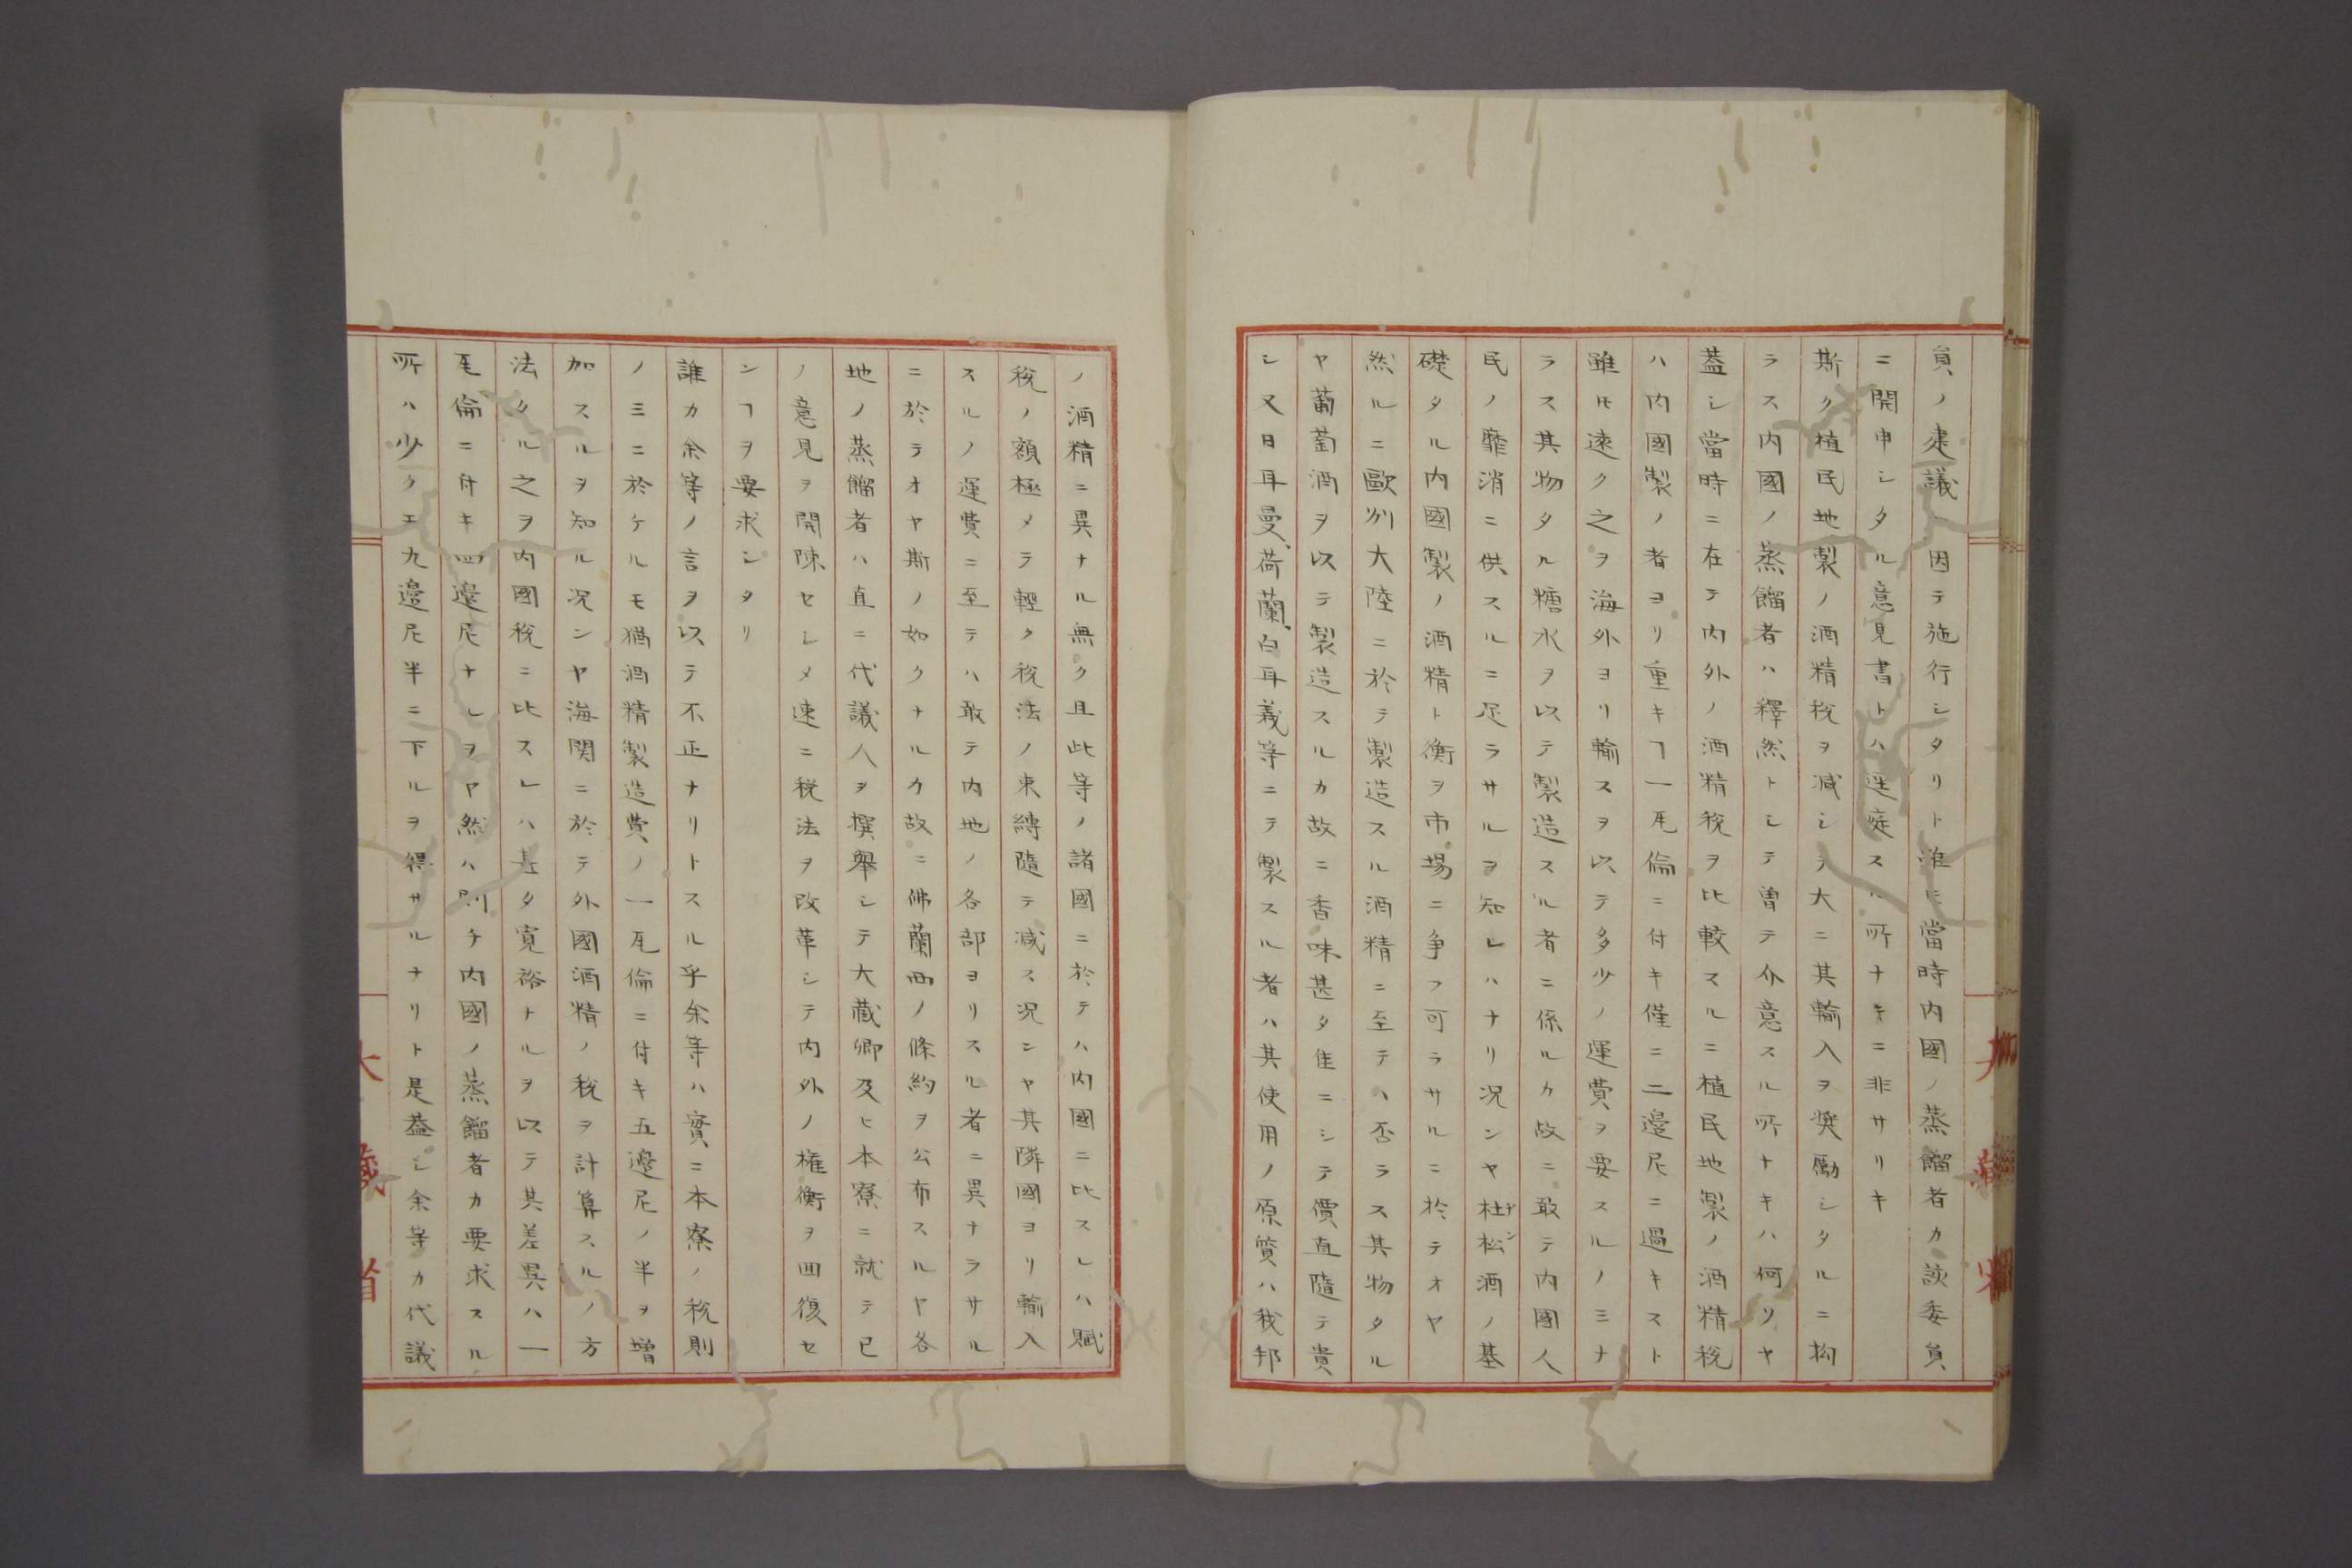 員ノ建議ニ因テ施行シタリト雖ヒ當時内國ノ蒸餾者カ該委員
ニ開申シタル意見書トハ逕庭スル所ナキニ非サリキ
斯ク植民地製ノ酒精稅ヲ減シテ大ニ其輸入ヲ奬勵シタルニ拘
ラス内國ノ蒸餾者ハ釋然トシテ曽テ介意スル所ナキハ何ソヤ
蓋シ當時ニ在テ内外ノ酒精稅ヲ比較スルニ植民地製ノ酒精稅
ハ内國製ノ者ヨリ重キヿ一瓦倫ニ付キ僅ニ二邉尼ニ過キスト
雖ヒ遠ク之ヲ海外ヨリ輸スヲ以テ多少ノ運費ヲ要スルノミナ
ラス其物タル糖水ヲ以テ製造スル者ニ係ルカ故ニ敢テ内國人
民ノ靡消ニ供スルニ足ラサルヲ知レハナリ况ンヤ杜松酒ノ基
礎タル内國製ノ酒精ト衡ヲ市場ニ争フ可ラサルニ於テオヤ
然ルニ歐州大陸ニ於テ製造スル酒精ニ至テハ否ラス其物タル
ヤ葡萄酒ヲ以テ製造スルカ故ニ香味甚タ佳ニシテ價直隨テ貴
シ又日耳曼、荷蘭、白耳義等ニテ製スル者ハ其使用ノ原質ハ我邦
ノ酒精ニ異ナル無ク且此等ノ諸國ニ於テハ内國ニ比スレハ賦
稅ノ額極メテ輕ク稅法ノ束縛隨テ减ス况ンヤ其隣國ヨリ輸入
スルノ運費ニ至テハ敢テ内地ノ各部ヨリスル者ニ異ナラサル
ニ於テオヤ斯ノ如クナルカ故ニ佛蘭西ノ條約ヲ公布スルヤ各
地ノ蒸餾者ハ直ニ代議人ヲ撰舉シテ大蔵卿及ヒ本寮ニ就テ已
ノ意見ヲ開陳セシメ速ニ稅法ヲ改革シテ内外ノ權衡ヲ囬復セ
ンヿヲ要求シタリ
誰カ余等ノ言ヲ以テ不正ナリトスル乎余等ハ實ニ本寮ノ稅則
ノミニ於ケルモ猶酒精製造費ノ一瓦倫ニ付キ五邉尼ノ半ヲ増
加スルヲ知ル况ンヤ海関ニ於テ外國酒精ノ稅ヲ計算スルノ方
法タル之ヲ内國稅ニ比スレハ甚タ寛裕ナルヲ以テ其差異ハ一
瓦倫ニ付キ四邉尼ナルヲヤ然ハ則チ内國ノ蒸餾者カ要求スル
所ハ少クモ九邉尼半ニ下ルヲ得サルナリト是蓋シ余等カ代議
大藏省